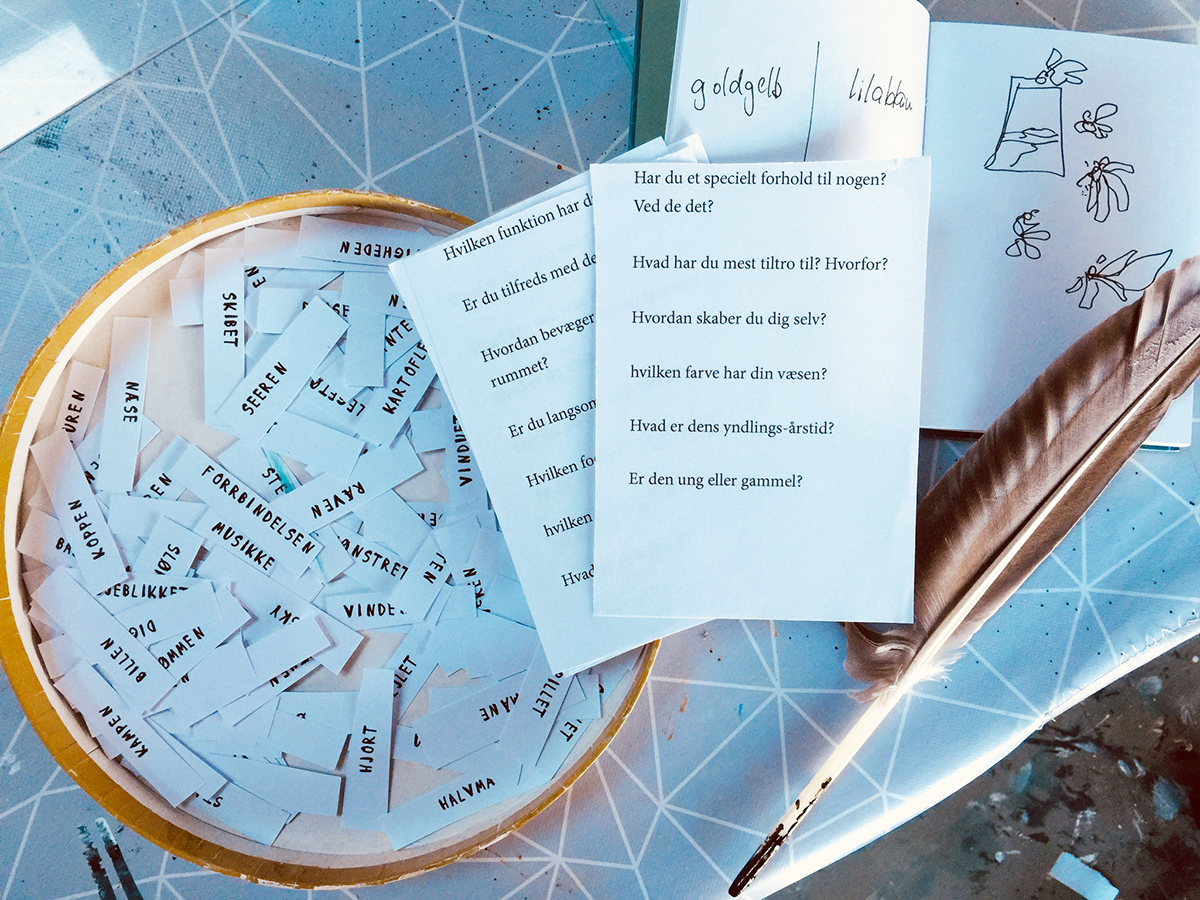 goldgelb
lilablau
Har du et specielt forhold til nogen?
Ved de det?
Hvad har du mest tiltro til? Hvorfor?
Hvordan skaber du dig selv?
hvilken farve har din væsen?
Hvad er dens yndlings-årstid?
Er den ung eller gammel?
Hvilken funktion har d
Er du tilfreds med de
Hvordan bevæger
rummet?
Er du langsom
Hvilken fo
hvilken
Hvad
IGHEDEN
SKIBET
SEEREN
NÆSE
UREN
KARTOFLE
NTE
VINDUE
STE
RÆVEN
FORRBINDELSEN
MUSIKKE
KOPPEN
SLØ
ØNSTRET
VINDE
JEBLIKKET
DIG
ØMMEN
SKY
BILLEN
KAMPEN
HJORT
MÅNE
BILLET
HALVMA